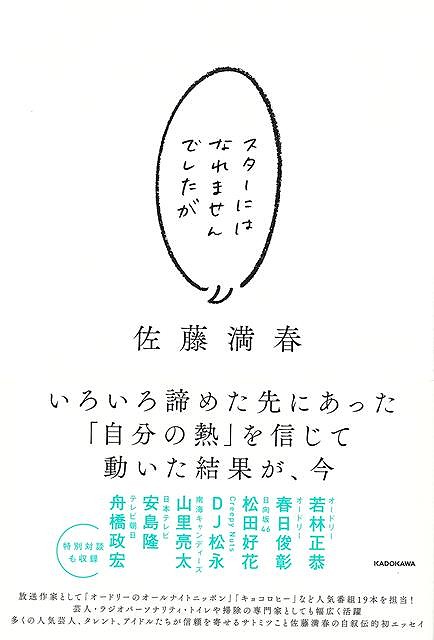 スターには
なれません
でしたが
佐藤満春
いろいろ諦めた先にあった
「自分の熱」を信じて
動いた結果が、今
オードリー
若林正恭
オードリー
春日俊彰
日向坂46
松田好花
Creepy Nuts
DJ松永
南海キャンディーズ
山里亮太
日本テレビ
安島隆
テレビ朝日
舟橋政宏
特別対談
も収録
KADOKAWA
放送作家として「オードリーのオールナイトニッポン」「キョコロヒー」など人気番組19本を担当!
芸人・ラジオパーソナリティ・トイレや掃除の専門家としても幅広く活躍
多くの人気芸人、タレント、アイドルたちが信頼を寄せるサトミツこと佐藤満春の自叙伝的初エッセイ